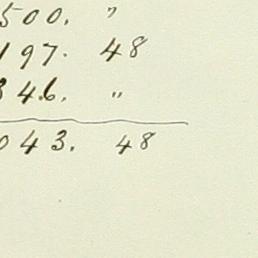 500. "
197. 48
346. "
043. 48